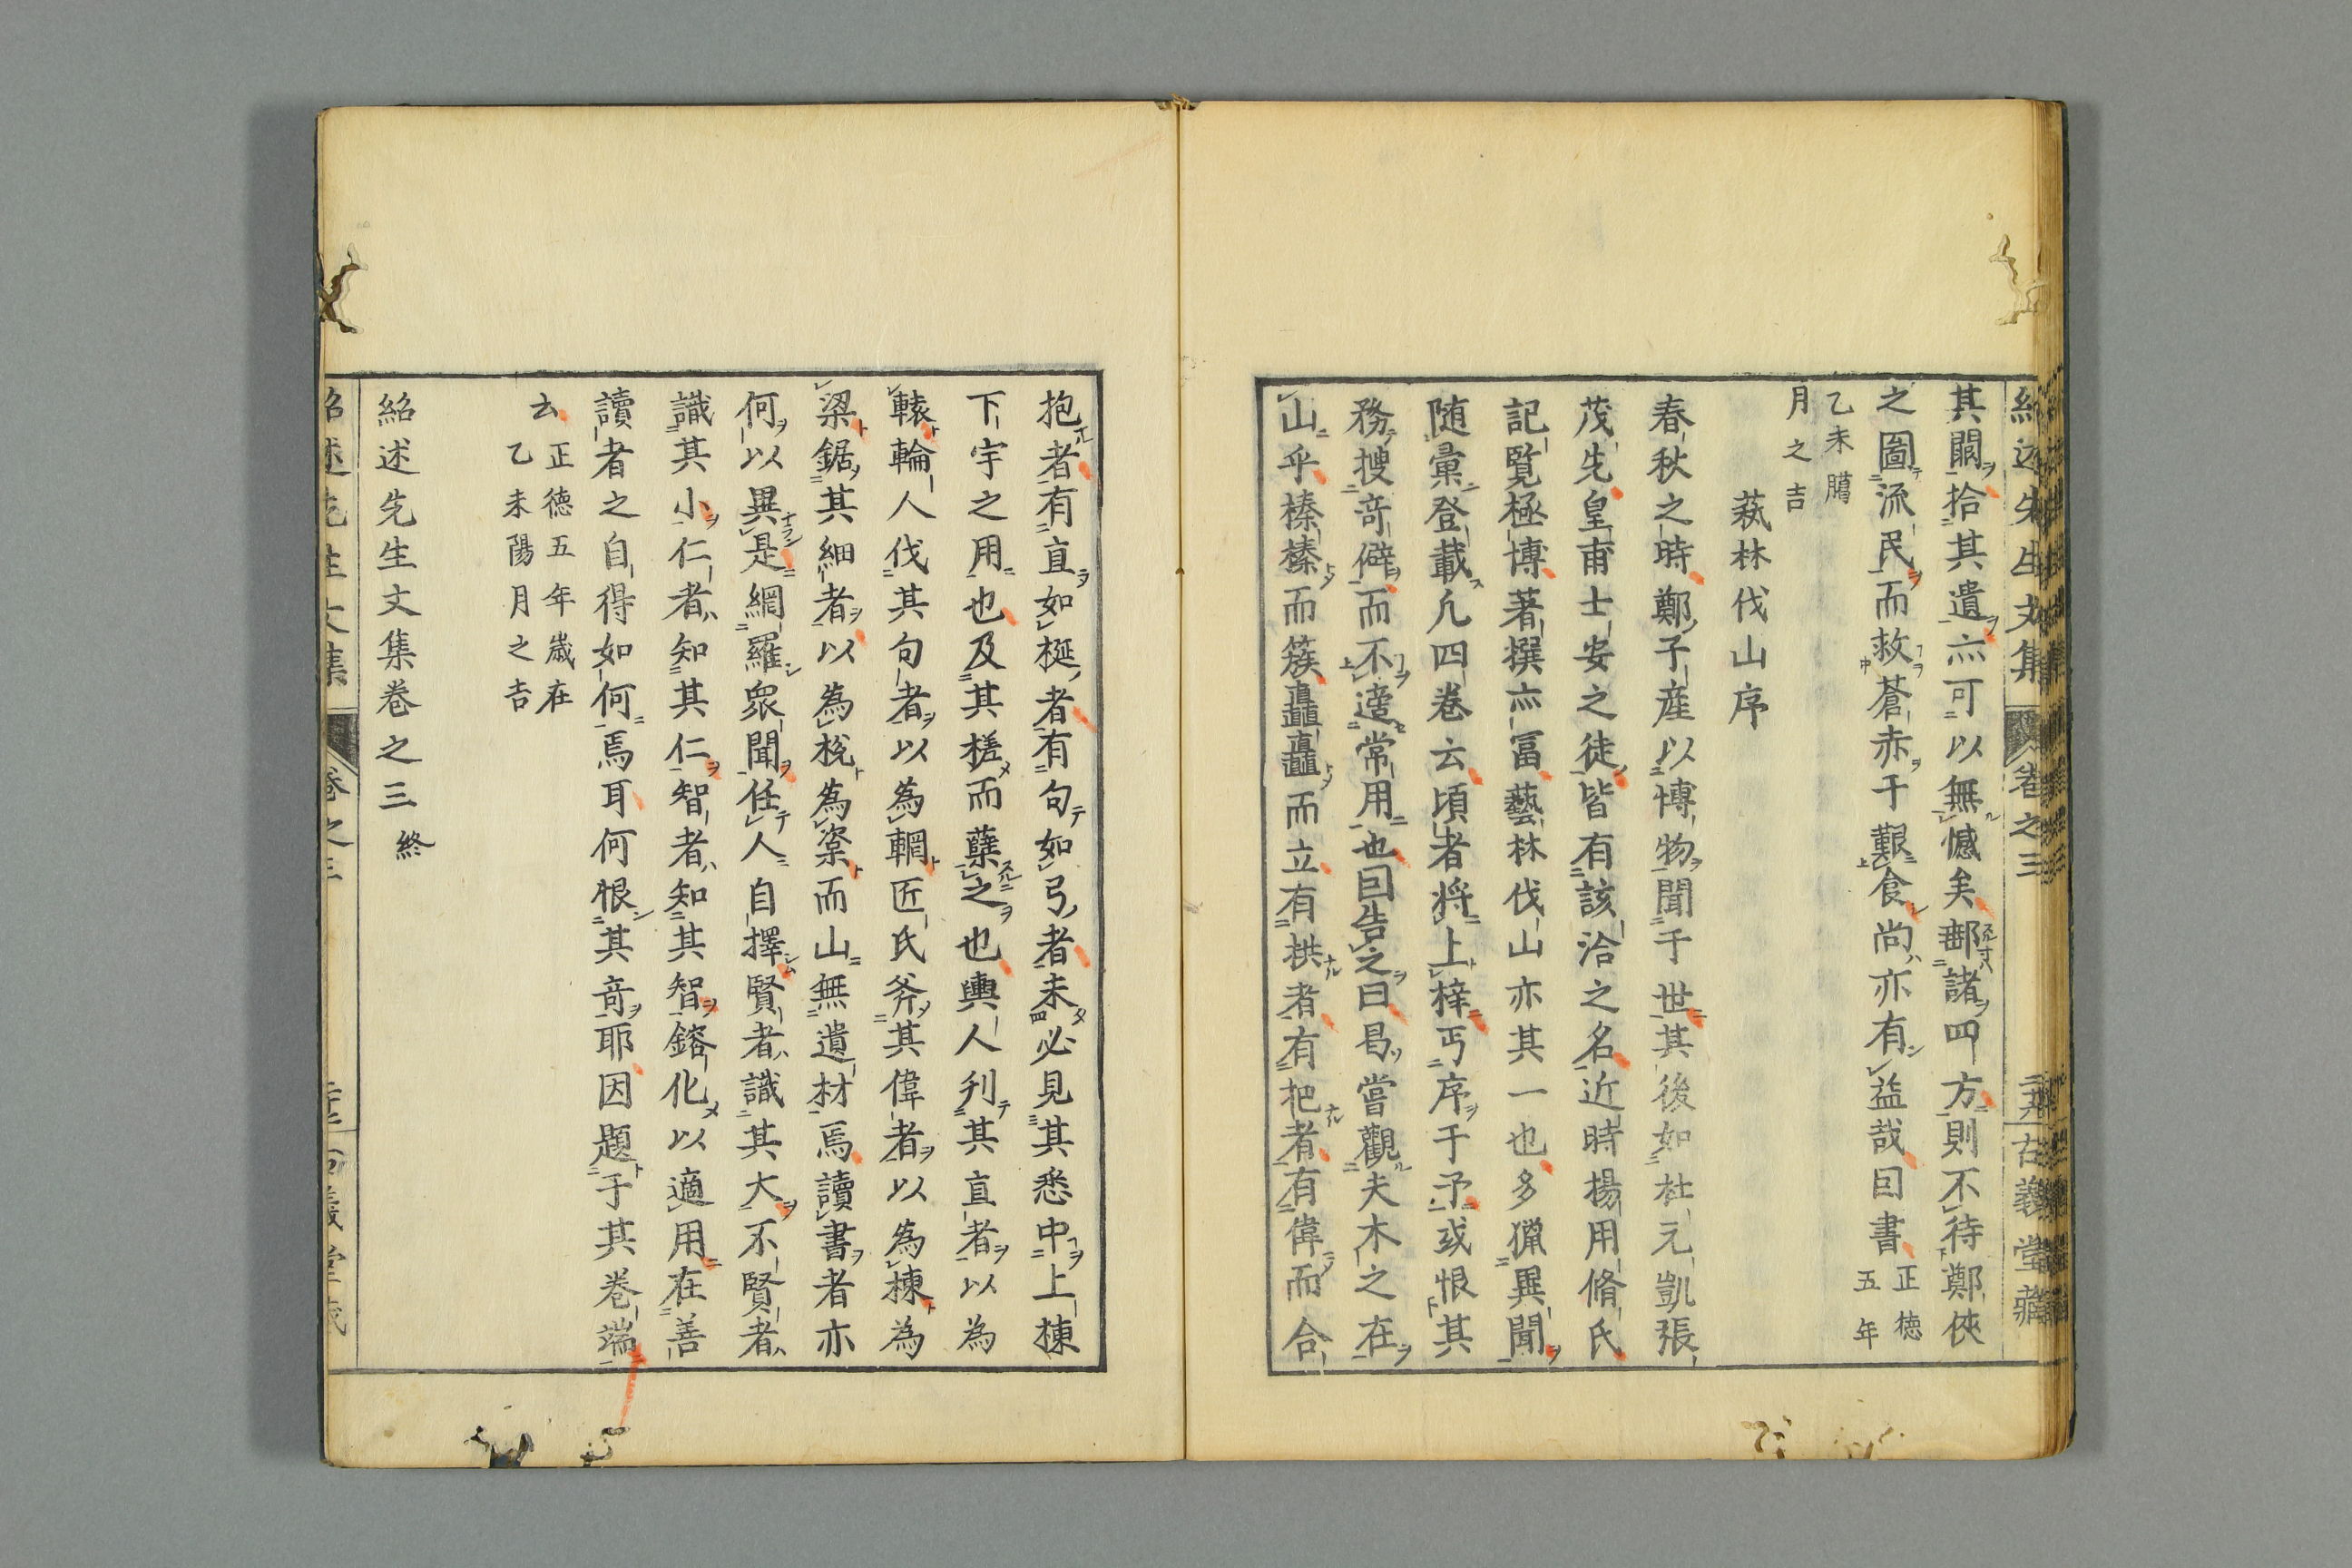 紹述先生文集 卷之三 古義堂藏
其闕拾其遺亦可以無憾矣郵諸四方則不待鄭俠
之圖流民而救蒼赤于艱食尚亦有益哉囙書正德五年
乙未臈月之吉
萟林伐山序
春秋之時鄭子産以博物聞于世其後如杜元凱張
茂先皇甫士安之徒皆有該洽之名近時楊用脩氏
記覧極博著撰亦冨藝林伐山亦其一也多獵異聞
随彙登載凢四卷云頃者將上梓丐序于予或恨其
務搜竒僻而不適常用也囙告之曰曷嘗觀夫木之在
山乎榛榛而簇矗矗而立有拱者有把者有偉而合
抱者有直如梴者有句如弓者未必見其悉中上棟
下宇之用也及其槎而蘖之也輿人刋其直者以為
轅輪人伐其句者以為輞匠氏斧其偉者以為棟為
梁鋸其細者以為梲為楶而山無遺材焉讀書者亦
何以異是網羅衆聞任人自擇賢者識其大不賢者
識其小仁者知其仁智者知其智鎔化以適用在善
讀者之自得如何焉耳何恨其竒耶因題于其卷端
云正德五年歳在
乙未陽月之吉
紹述先生文集卷之三終